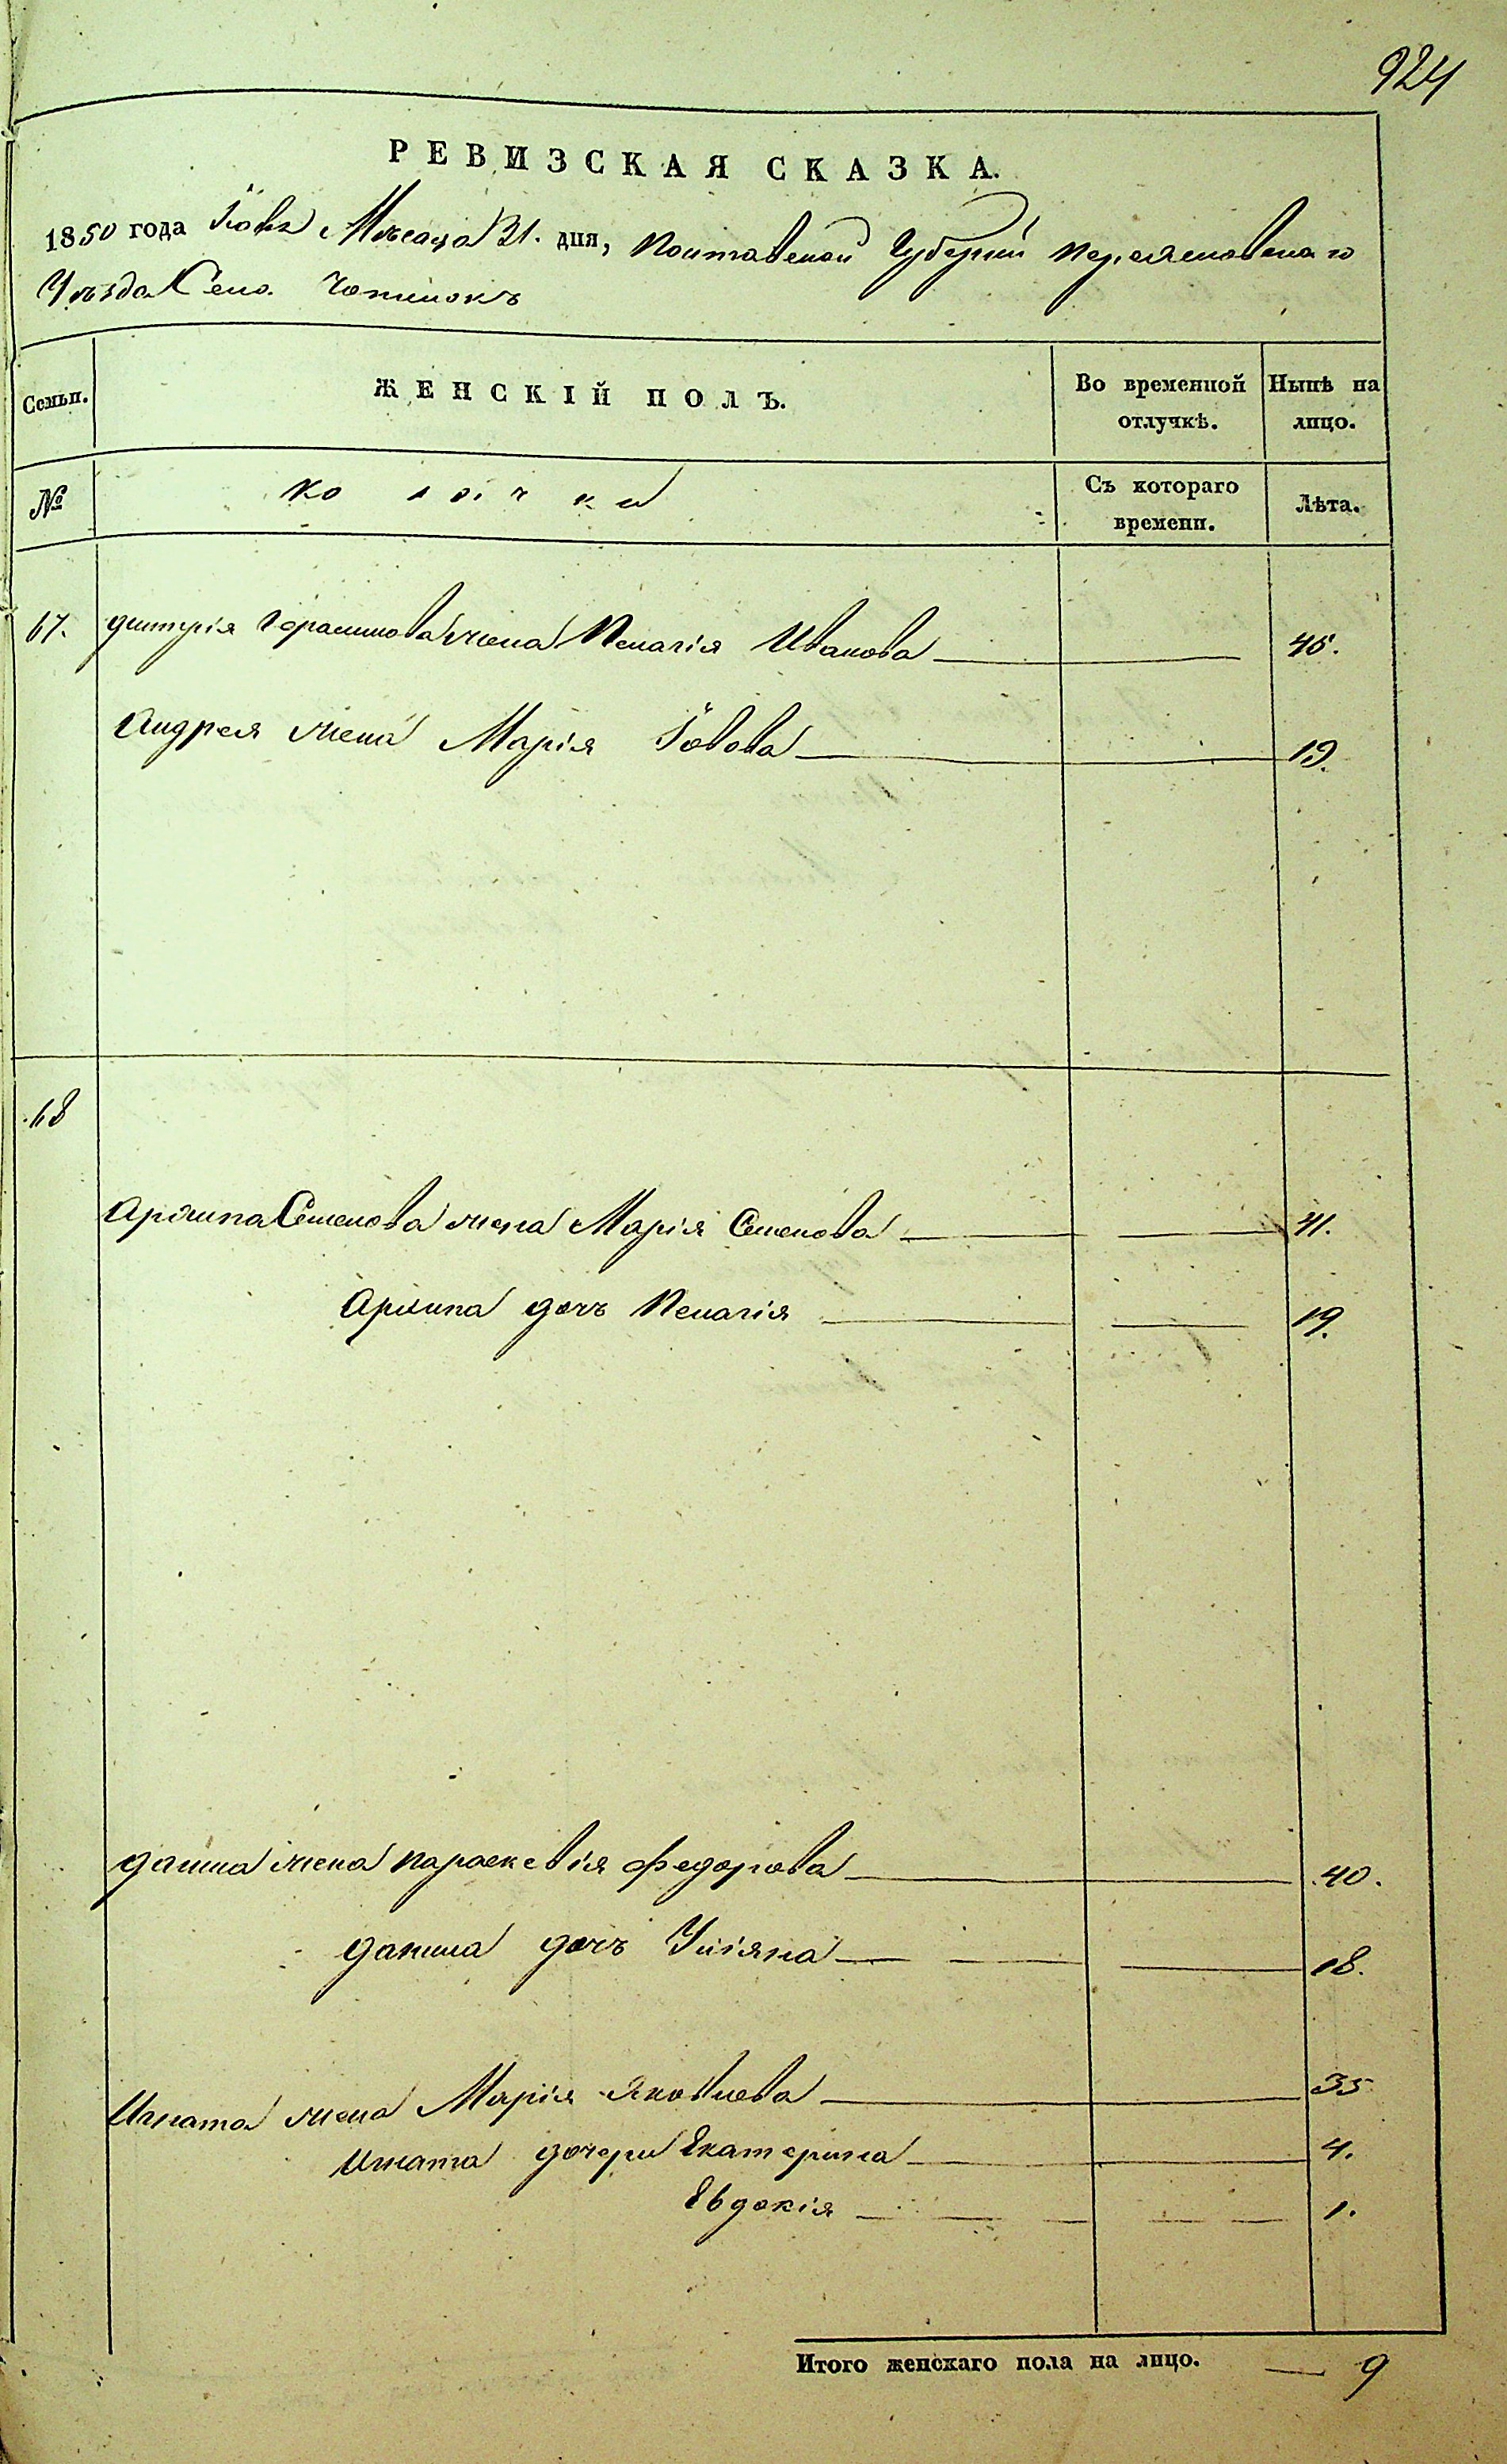 924
РЕВИЗСКАЯ СКАЗКА.
1850 года Мѣсяца 31. дня, Полтавской Губерніи Переяславскаго
Уѣзда Село
Семьи. ЖЕНСКІЙ ПОЛЪ. Во временной отлучкѣ. Нынѣ на лицо.
№ Съ котораго времени. Лѣта.
67. Дмитрія Герасимова жена Пелагія Иванова 45.
Андрея жена Марія Іовова 19.
68
Архипа Семенова жена Марія Семенова 41.
Архипа дочь Пелагія 19.
Данила жена Параскевія Федорова 40.
Данила дочь Уліяна 18.
Игната жена Марія Яковлева 35
Игната дочери Екатерина 4.
Евдокія 1.
Итого женскаго пола на лицо. — 9